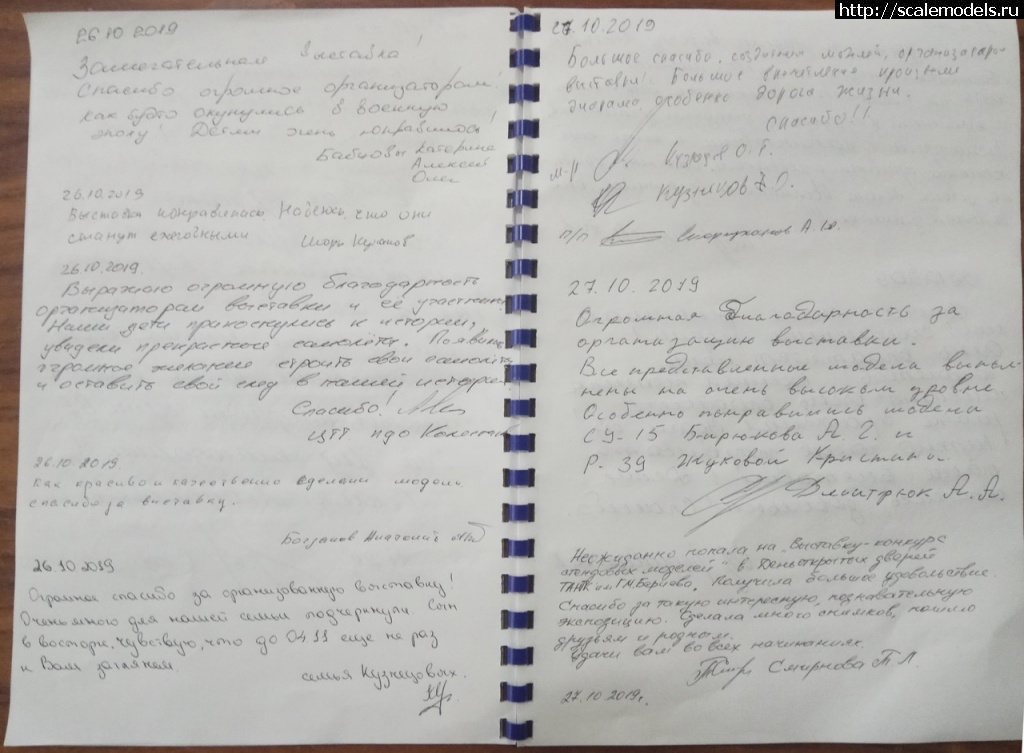 http://scalemodels.ru
26.10.2019
Замечательная выставка!
Спасибо огромное организаторам!
Как будто окунулись в военную
эпоху! Детям очень понравилось!
Катерина
Алексей
Олег
26.10.2019
Выставка понравилась. Надеюсь, что они
станут ежегодными
26.10.2019.
Выражаю огромную благодарность
организаторам выставки и её участникам
Наши дети прикоснулись к истории,
увидели прекрасные самолёты.
огромное желание строить свои самолёты
и оставить свой след в нашей истории
Спасибо!
ЦТТ пдо
26.10.2019.
Как красиво и качественно сделаны модели
спасибо за выставку.
Богданов Анатолий
26.10.2019
Огромное спасибо за организованную выставку!
Очень много для нашей семьи подчеркнули. Сын
в восторге, чувствую, что до 04.11 еще не раз
к Вам заглянем.
семья Кузнецовых.
27.10.2019
Большое спасибо, организаторам
выставки! Большое впечатление произвели
диорама, особенно дорога жизни.
Спасибо!!
М-р
О.
п/п
А.
27.10.2019
Огромная благодарность за
организацию выставки.
Все представленные модели выпол-
нены на очень высоком уровне.
Особенно понравились модели
СУ-15 Бирюкова А. Г. и
Р-39 Жуковой Кристины.
Дмитрюк А. А.
Неожиданно попала на „Выставку-конкурс
стендовых моделей" в День открытых дверей
ТАНТК им. Г.М. Бериева. Получила большое удовольствие.
Спасибо за такую интересную, познавательную
экспозицию. Сделала много снимков, пошлю
друзьям и родным.
Удачи вам во всех начинаниях.
Смирнова Т.Л.
27.10.2019г.